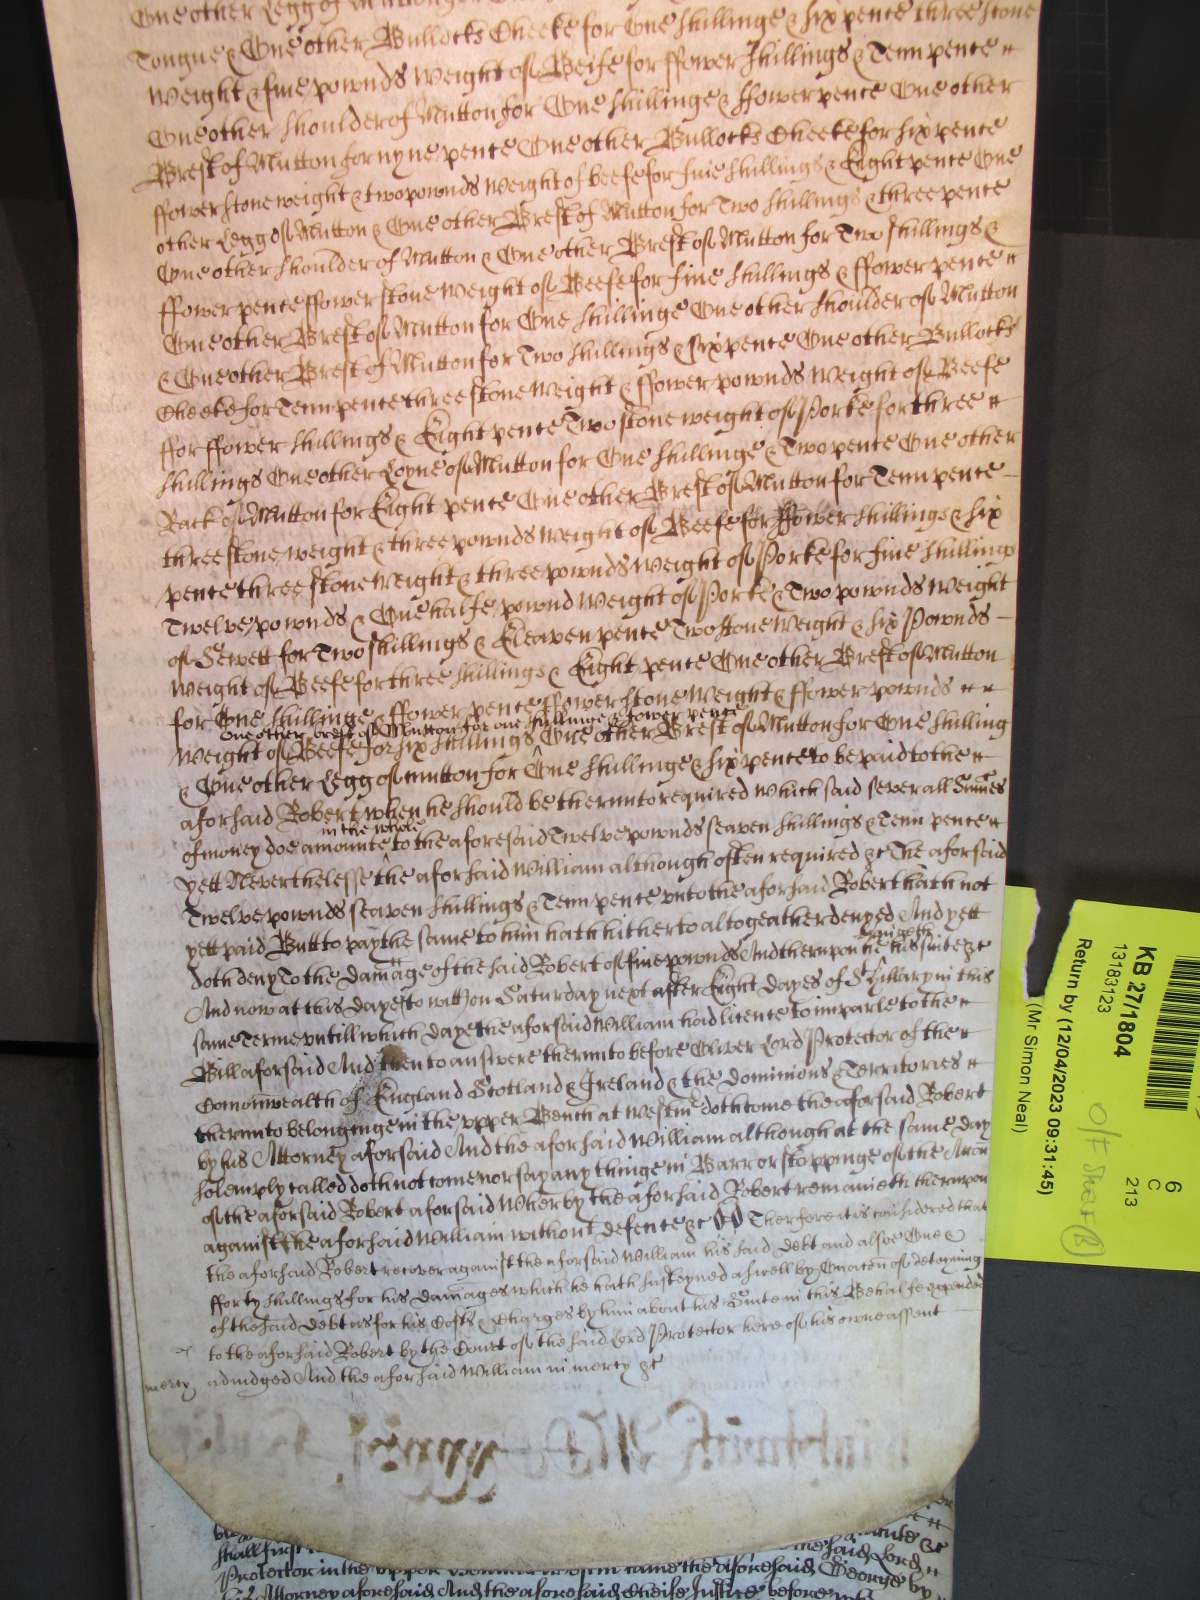 One other Legg of Mutton for One
Tongue & One other Bullocks Cheeke for One shillinge & six pence three stone
weight & five pownds weight of Beife for ffower shillings & Tenn pence
One other shoulder of Mutton for One shillinge & ffower pence One other
Brest of Mutton for nyne pence One other Bullocks Cheeke for six pence
ffower stone weight & two pownds weight of beefe for five shillings & Eight pence One
other Legg of Mutton & One other Brest of Mutton for Two shillings & three pence
One other shoulder of Mutton & One other Brest of Mutton for Two shillings &
ffower pence ffower stone weight of Beefe for five shillings & ffower pence
One other Brest of Mutton for One shillinge One other shoulder of Mutton
& One other Brest of Mutton for Two shillings & six pence One other Bullocks
Cheeke for Tenn pence three stone weight & ffower pownds weight of Beefe
ffor ffower shillings & Eight pence Two stone weight of Porke for three
shillings One other Loyne of Mutton for One shillinge & Two pence One other
Rack of Mutton for Eight pence One other Brest of Mutton for Tenn pence
three stone weight & three pownds weight of Beefe for ffower shillings & six
pence three stone weight & three pownds weight of Porke for five shillings
Twelve pownds & One halfe pownd weight of Porke & Two pownds weight
of Sewett for Two shillings & Eleaven pence Two stone weight & six Pownds
weight of Beefe for three shillings & Eight pence One other Brest of Mutton
for One shillinge & ffower pence ffower stone weight & ffower pownds
One other brest of Mutton for one shillinge & fower pence
weight of Beefe for six shillings One other Brest of Mutton for One shilling
& One other Legg of mutton for One shillinge & six pence to be paid to the
aforsaid Robert when he should be therunto required which said severall Summes
in the whole
of money doe amounte to the aforesaid Twelve pownds seaven shillings & Tenn pence
yett Neverthelesse the aforsaid William although often required &c The aforsaid
Twelve pownds seaven shillings & Tenn pence unto the aforsaid Robert hath not
yett paid Butt to pay the same to him hath hitherto altogeather denyed And yett
bringeth
doth deny To the damage of the said Robert of five pownds And therupon he his suite &c
And now at this daye to witt on Saturday next after Eight dayes of St Hillary in this
same Terme untill which daye the aforsaid William had licence to imparle to the
Bill aforsaid And then to answere therunto before Oliver Lord Protector of the
Comonwealth of England Scotland & Ireland & the Dominions & Territories
therunto belonginge in the upper Bench at Westm doth come the aforsaid Robert
by his Attorney aforsaid And the aforsaid William although at the same day
solemply called doth not come nor say any thinge in Barr or stoppinge of the Accon
of the aforsaid Robert aforsaid Wherby the aforsaid Robert remaineth therupon
against the aforsaid William without defence &c Therfore it is considered that
the aforsaid Robert recover against the aforsaid William his said Debt and alsoe One &
fforty shillings for his damages which he hath susteyned aswell by Occacon of detayning
of the said Debt as for his Costs & charges by him about his Suite in this Behalfe expended
to the aforsaid Robert by the Court of the said Lord Protector here of his owne assent
mercy adiudged And the aforsaid William in mercy &c
shall first
the said Lord
Protector in the upper came the aforesaid George by
Attorney aforesaid And the aforesaid Cheife Justice before
KB 27/1804
13183123
Return by (12/04/2023 09:31:45)
(Mr Simon Neal)
6
C
213